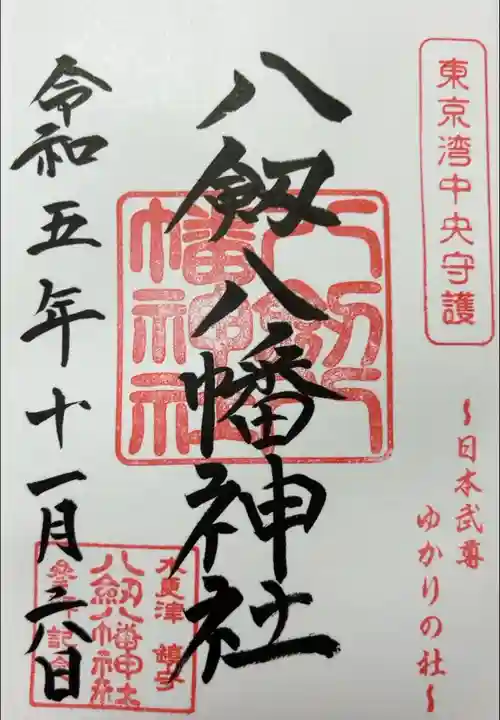 東京湾中央守護
~日本武尊
ゆかりの社~
八剱八幡神社
八剱八幡神社
令和五年十一月二八日
木更津 鎮守
八剱八幡神社
参拝記念